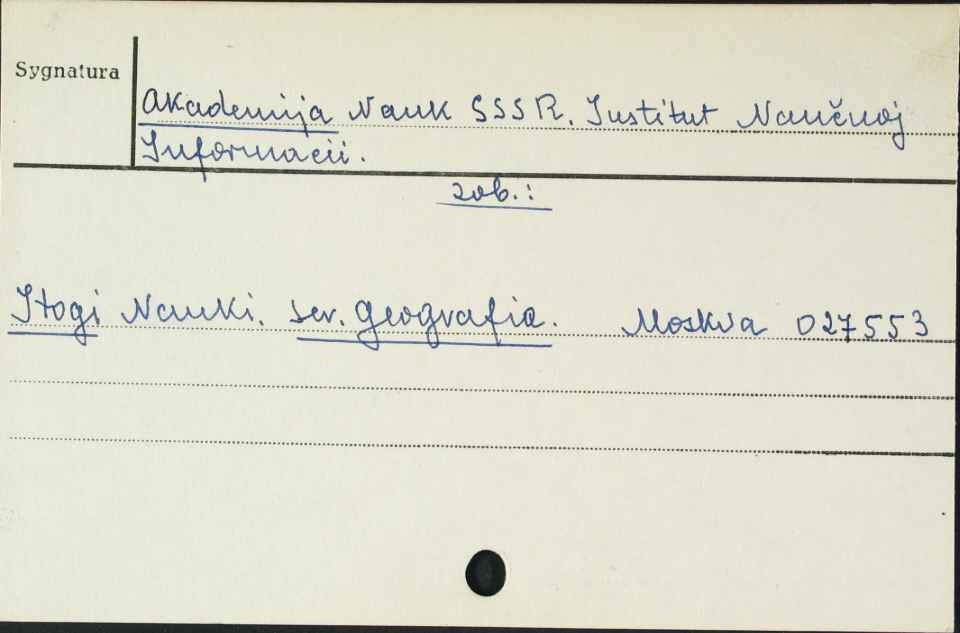 Sygnatura
Akademija Nauk SSSR. Institut Naučnoj
Informacii.
zob.:
Itogi Nauki. ser. Geografia. Moskva 027553